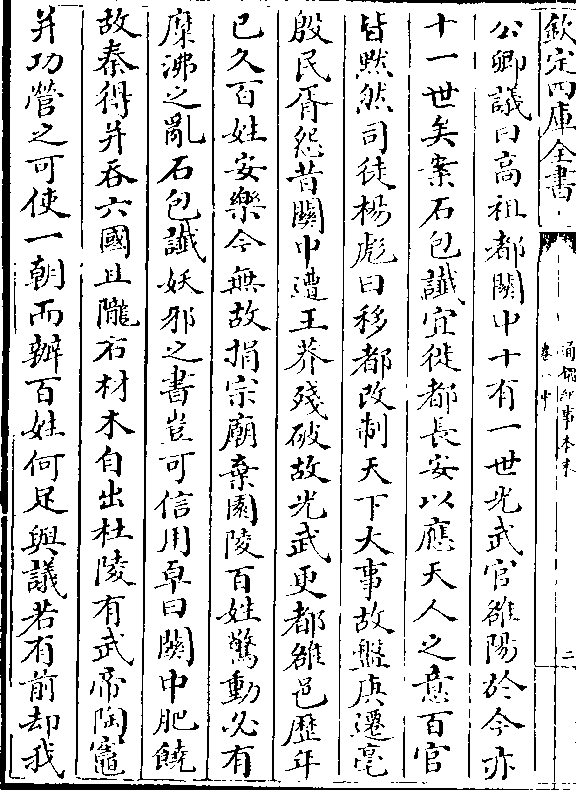 欽定四庫全書
通鑑紀事本末
卷八中
二
公卿議曰髙祖都闗中十有一世光武宫雒陽於今亦
十一世矣案石包讖宜徙都長安以應天人之意百官
皆黙然司徒楊彪曰移都改制天下大事故盤庚遷亳
殷民胥怨昔闗中遭王莽殘破故光武更都雒邑歴年
已久百姓安樂今無故捐宗廟棄園陵百姓驚動必有
糜沸之亂石包讖妖邪之書豈可信用卓曰闗中肥饒
故秦得并吞六國且隴右材木自出杜陵有武帝陶竈
并功營之可使一朝而辦百姓何足與議若有前却我